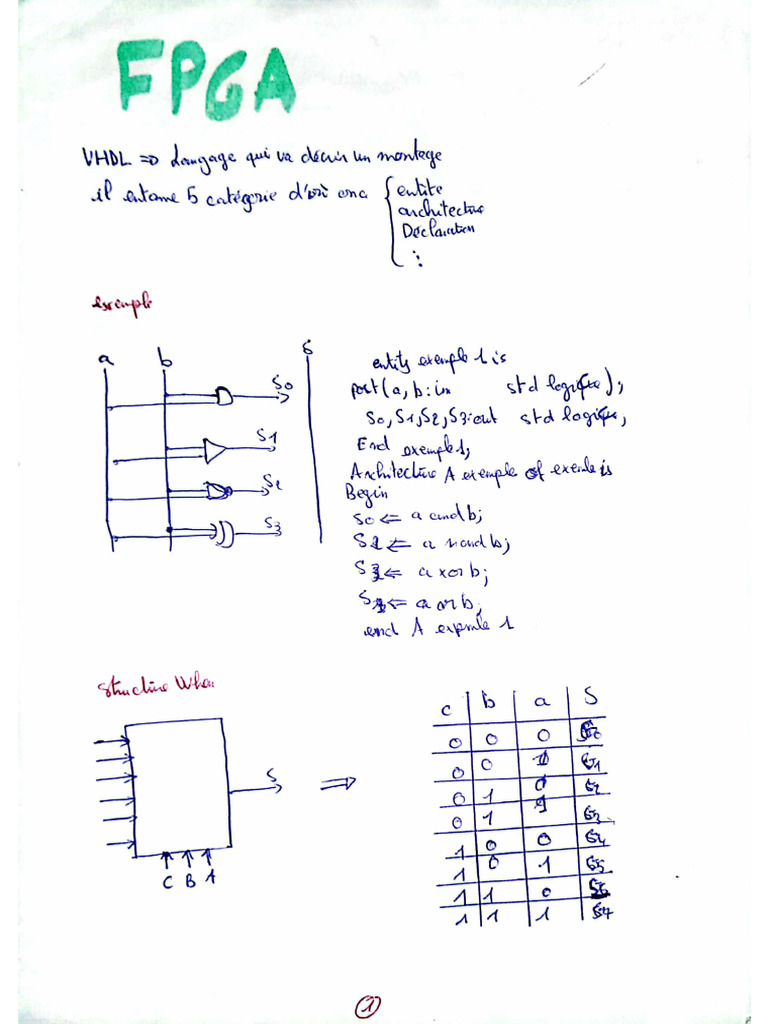 FPGA
VHDL => Langage qui va décrir un montege
il entame 5 catégorie d'où on a { entite
architecture
Déclaration
⋮
exemple
a b S
S0
S1
S2
S3
entity exemple 1 is
port(a, b: in std logique);
S0, S1, S2, S3: out std logique;
End exemple 1;
Architecture A exemple of exemle is
Begin
S0 <= a and b;
<= a nand b;
<= a xor b;
<= a or b;
end A exemple 1
Structure When
S =>
C B A
c b a S
0 0 0
0 0 1 E1
0 1 0 E2
0 1 1 E3
1 0 0 E4
1 0 1 E5
1 1 0
1 1 1
1